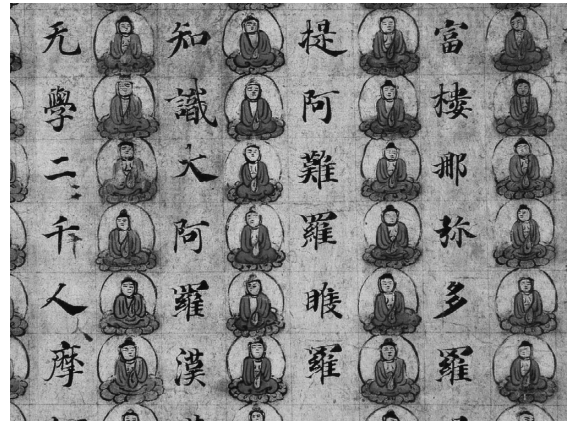 富樓那弥多羅
提阿難羅睺羅
知識大阿羅漢
无學二千人摩